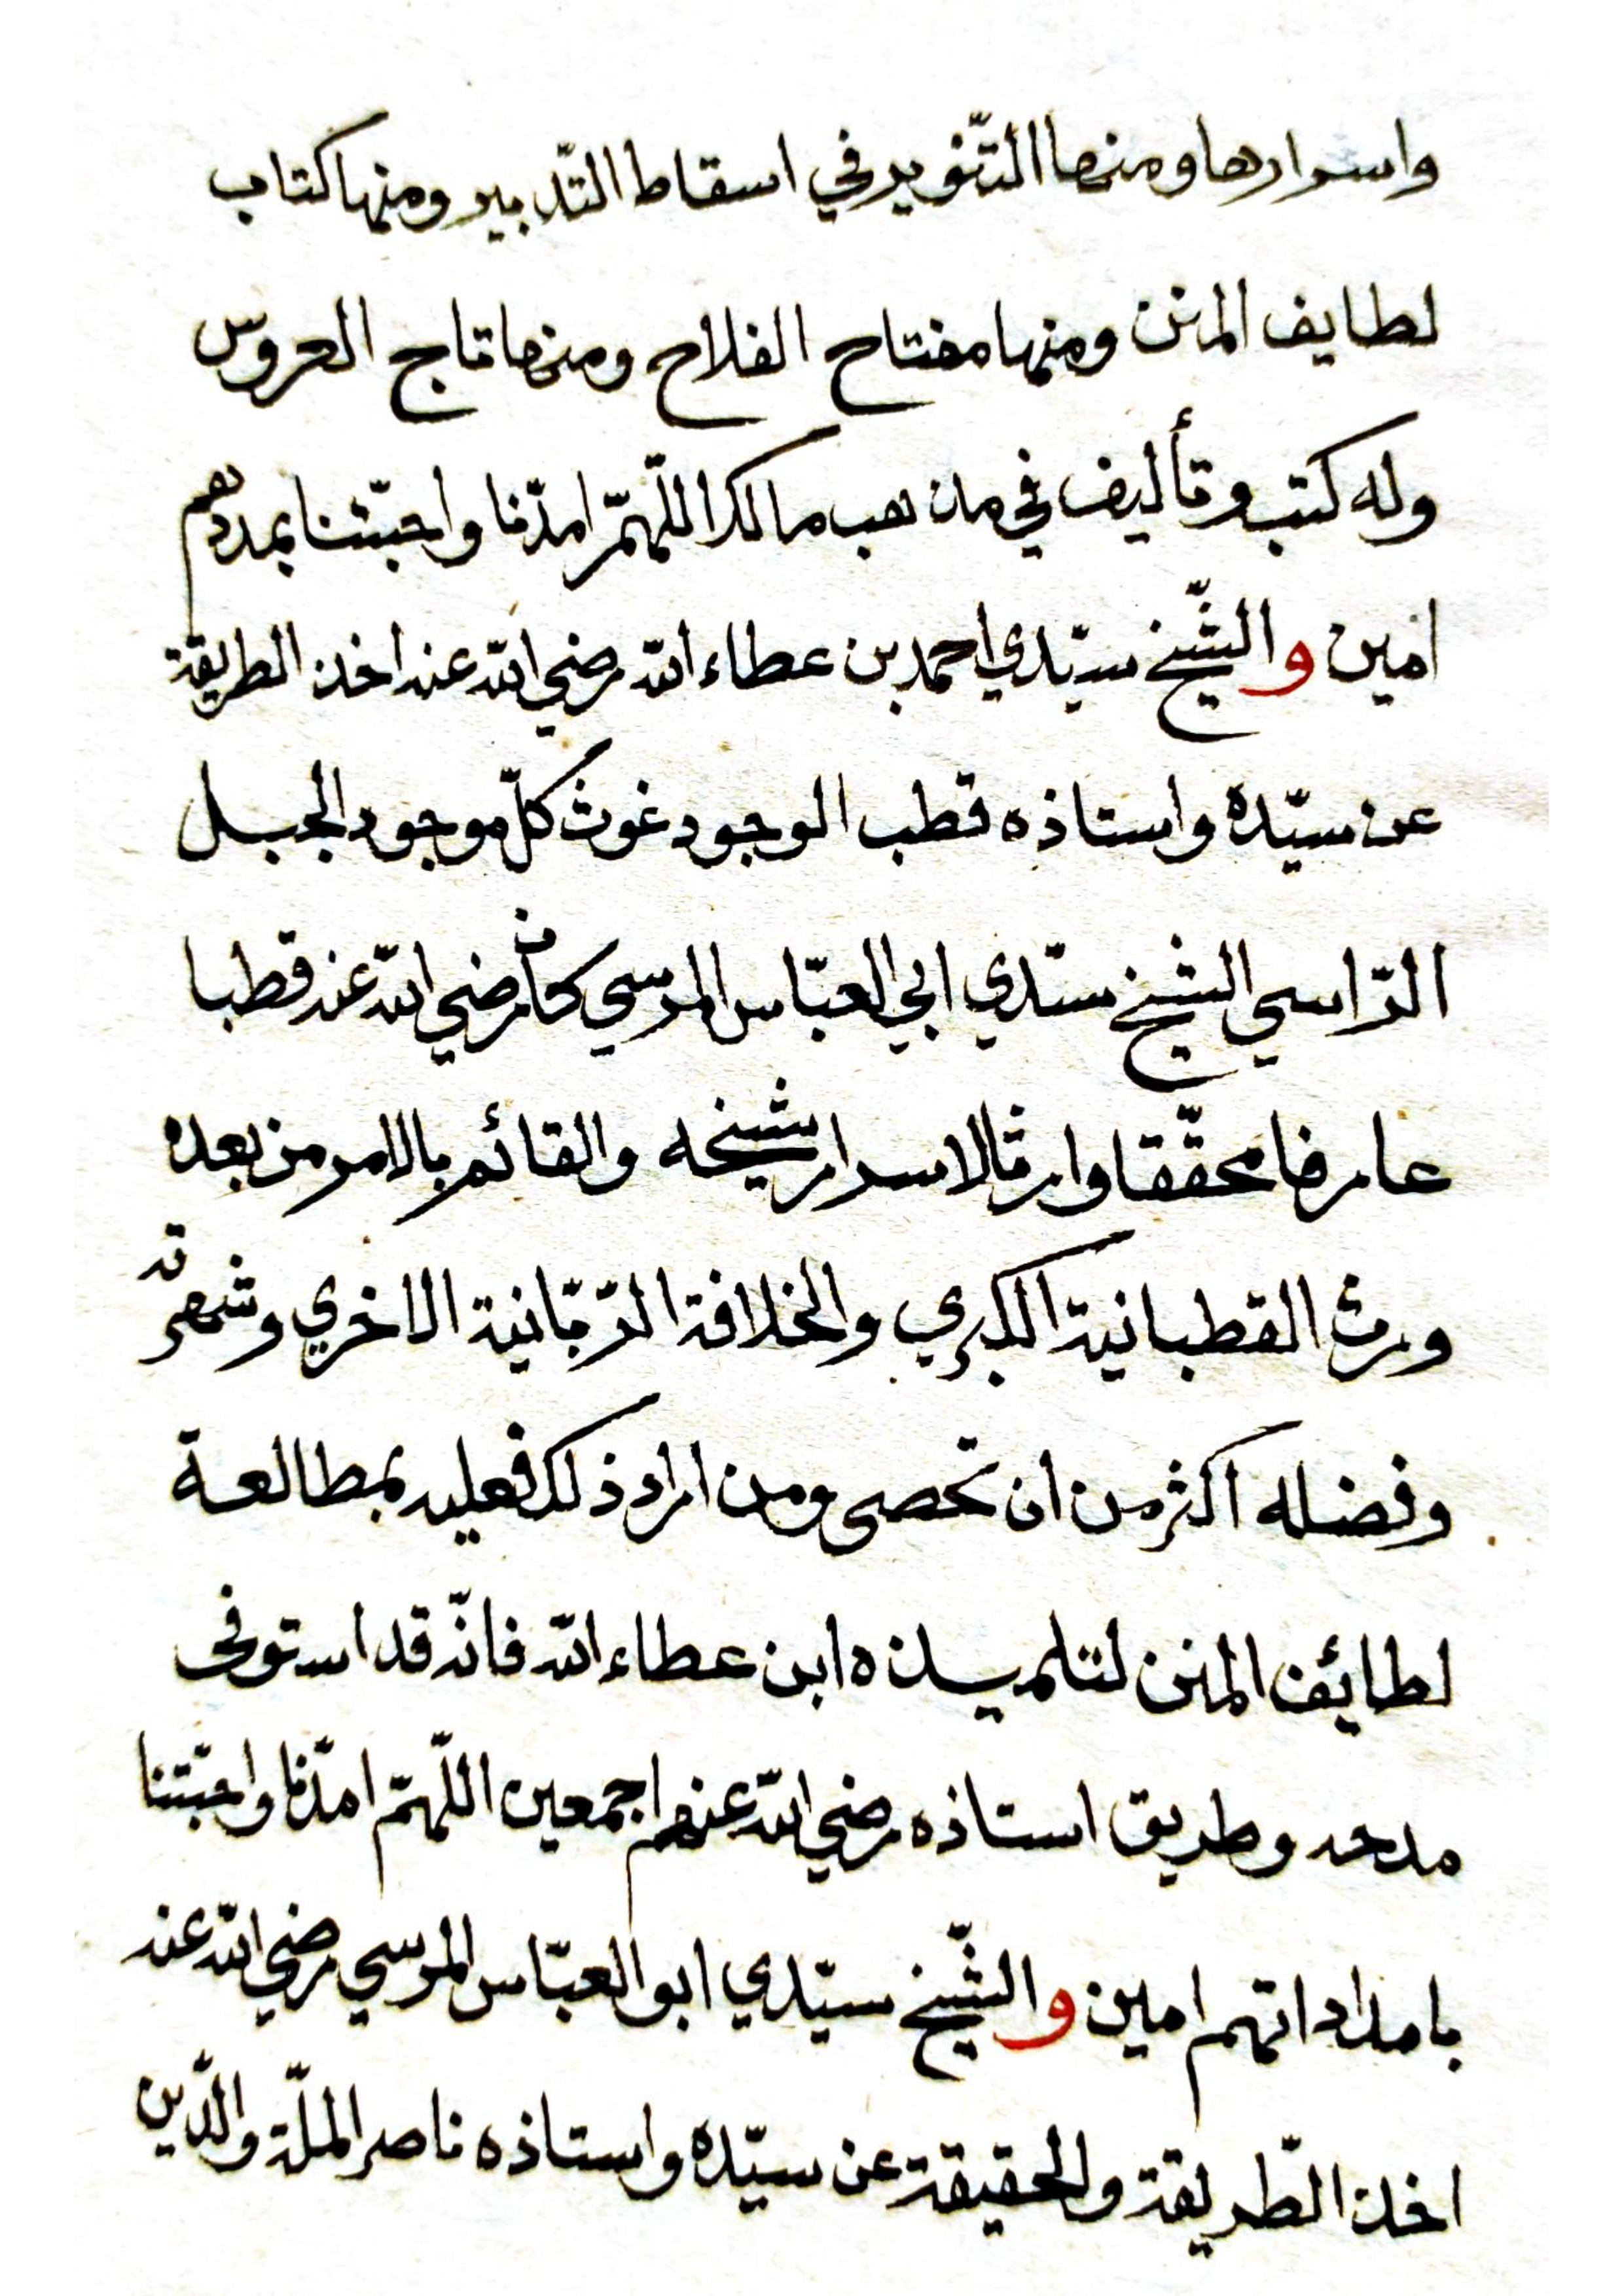 واسرارها ومنها التّنوير في اسقاط التّدبير ومنها كتاب
لطايف المنن ومنها مفتاح الفلاح ومنها تاج العروس
وله كتب وتأليف في مذهب مالك اللّهمّ امدّنا واحبّتنا بمددهم
امين والشّيخ سيّدي احمد بن عطاء الله رضي الله عنه اخذ الطريقة
عن سيّده واستاذه قطب الوجود غوث كلّ موجود الجبل
الرّاسي الشيخ سيّدي ابي العبّاس المرسي كان رضي الله عنه قطبا
عارفا محقّقا وارثا لاسرار شيخه والقائم بالامر من بعده
ورث القطبانية الكبري والخلافة الرّبّانية الاخري وشهرته
وفضله اكثر من ان تحصى ومن اراد ذلك فعليه بمطالعة
لطائف المنن لتلميذه ابن عطاء الله فانّه قد استوفى
مدحه وطريق استاذه رضي الله عنهم اجمعين اللّهمّ امدّنا واحبّتنا
بامداداتهم امين والشّيخ سيّدي ابو العبّاس المرسي رضي الله عنه
اخذ الطّريقة والحقيقة عن سيّده واستاذه ناصر الملّة والدّين